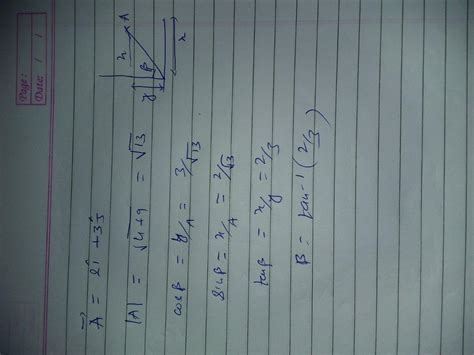 Page:
Date: / /
A⃗ = 2î + 3ĵ
|A| = √4+9 = √13
cosβ = y/A = 3/√13
sinβ = x/A = 2/√13
tanβ = x/y = 2/3
β = tan⁻¹(2/3)
x
A
β
y
x